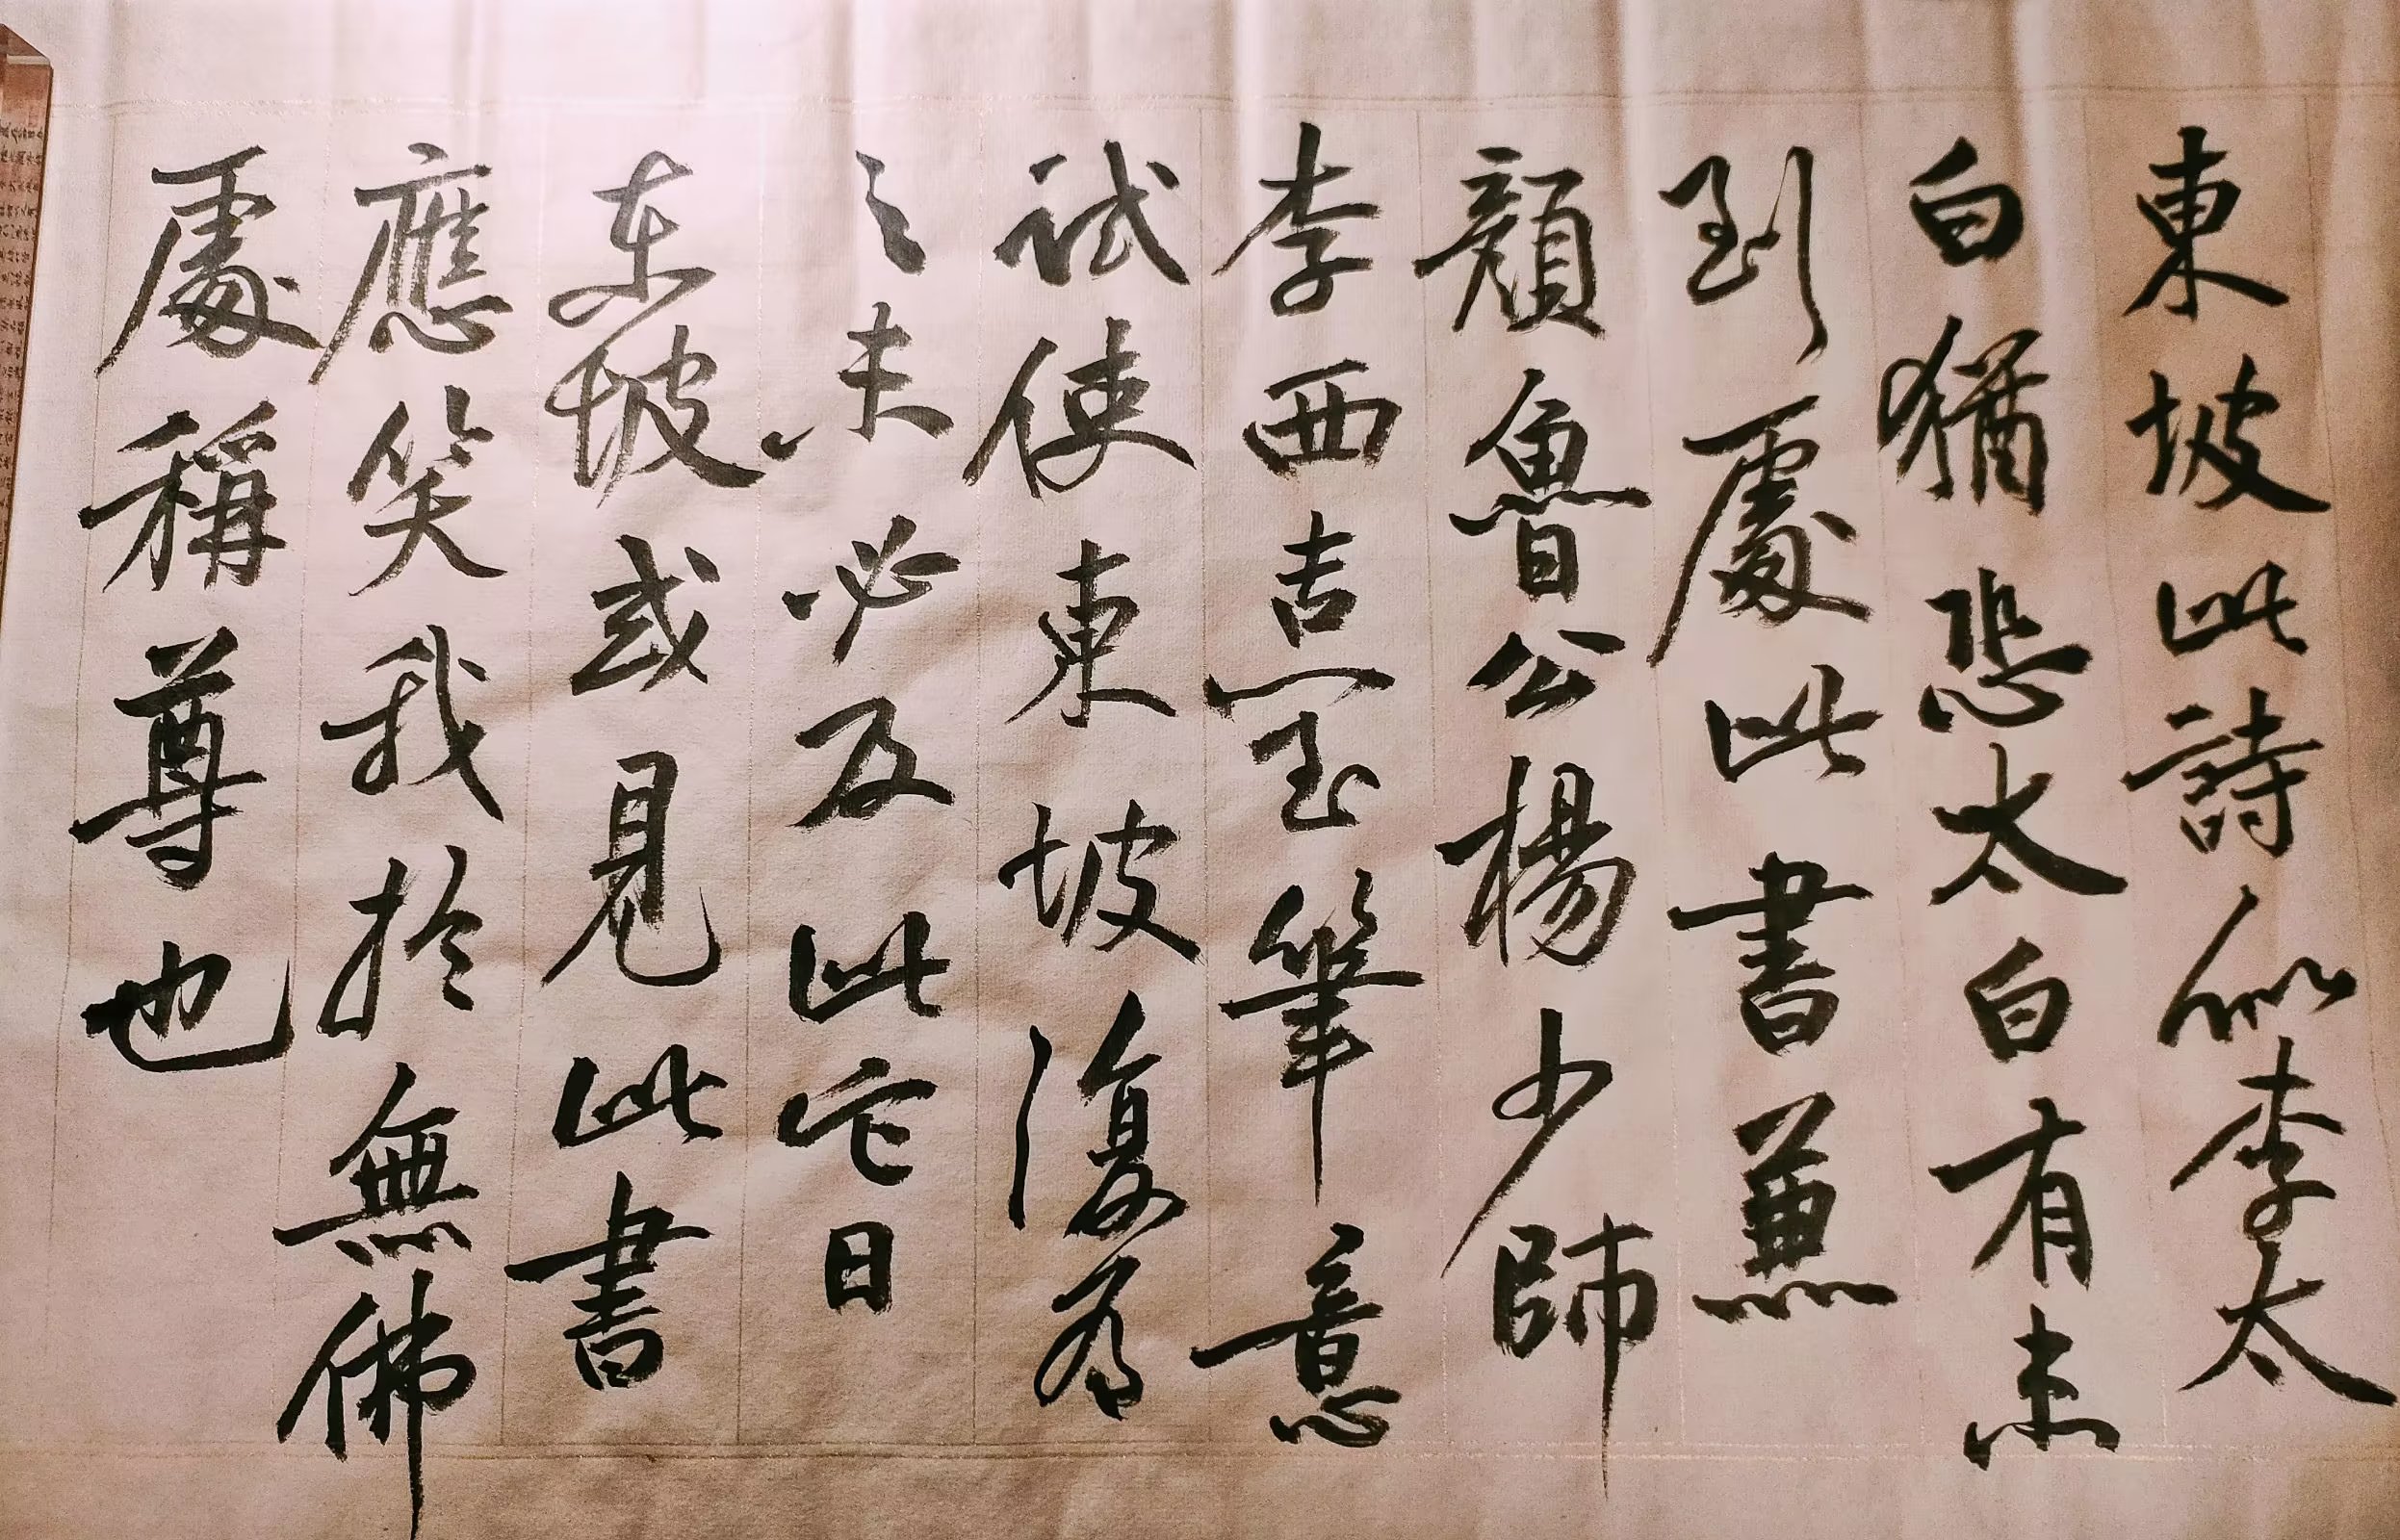 東坡此詩似李太
白猶恐太白有未
到處此書兼
顏魯公楊少師
李西臺筆意
試使東坡復為
之未必及此它日
东坡或見此書
應笑我於無佛
處稱尊也